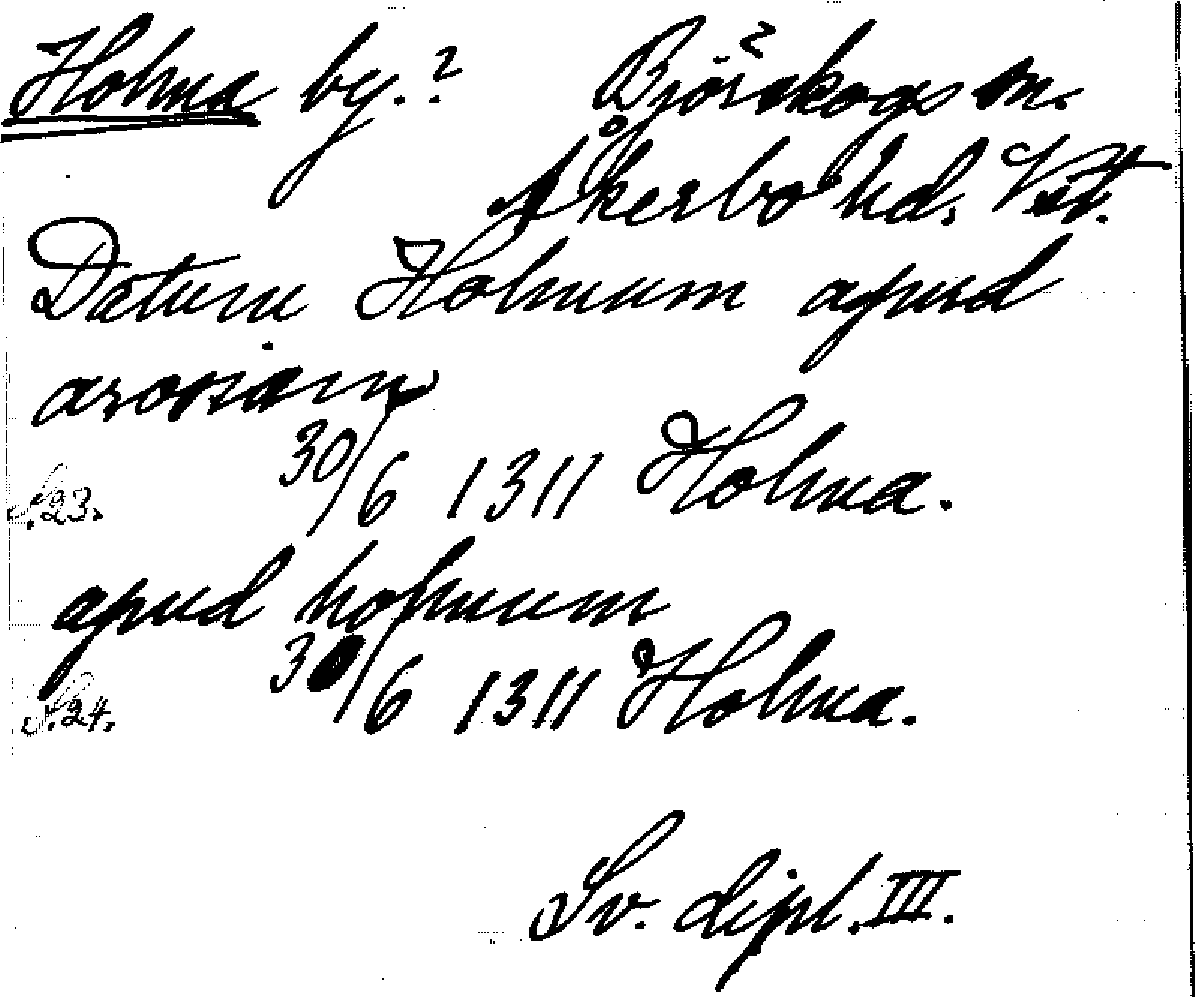 Holma by.? Björskogs sn. ?
Åkerbo hd. Vstm.
Datum Holmum apud
arosiam
S.23. 30/6 1311 Holma.
apud holmum
S.24. 30/6 1311 Holma.
Sv. dipl. III.